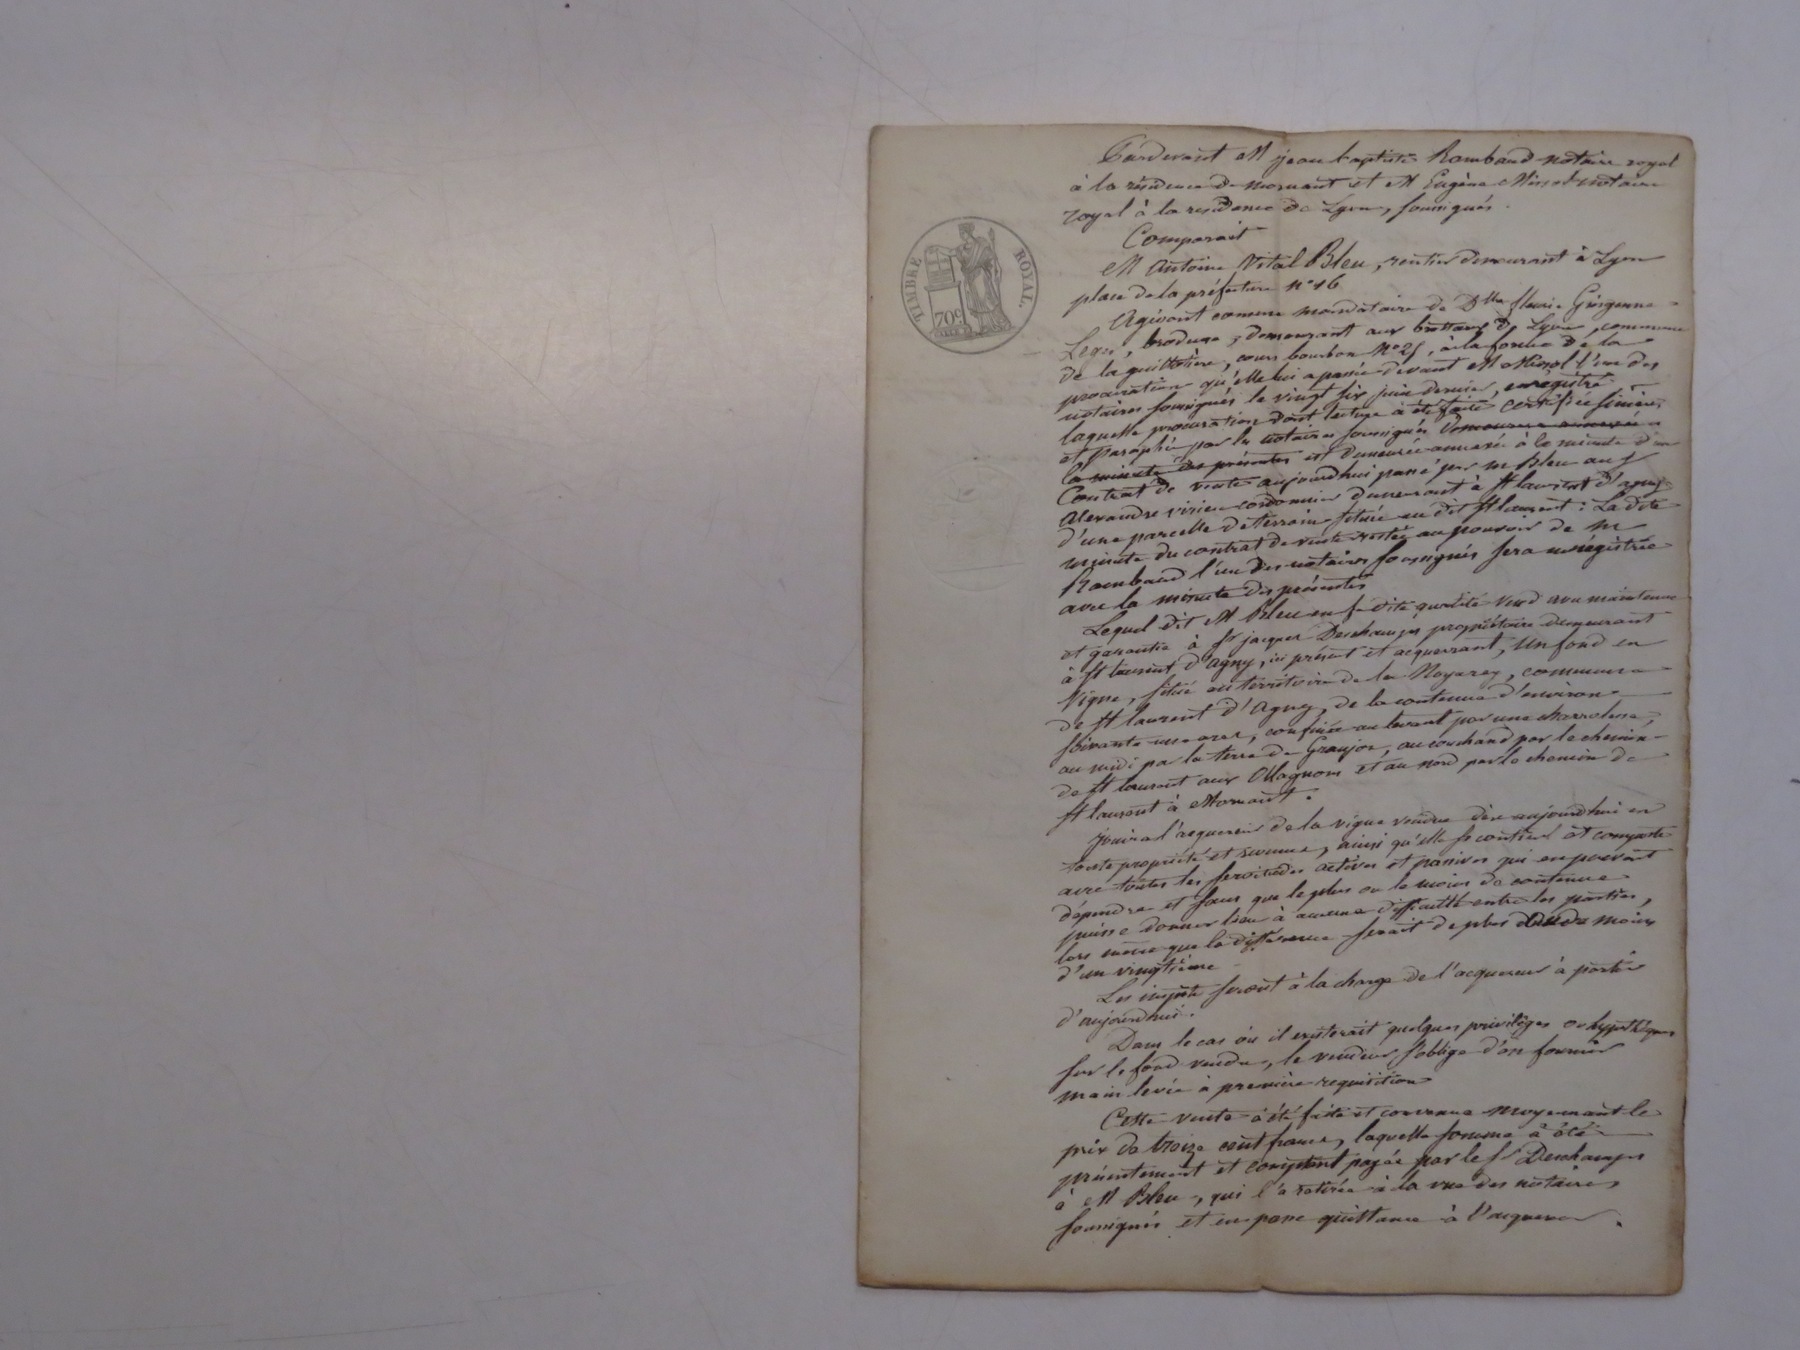 TIMBRE ROYAL.
70c
Pardevant M jean baptiste Rambaud notaire royal
à la résidence de mornant et M Eugène notaire
royal à la residence de Lyon, soussignés.
Comparait
M Antoine Vital Bleu, rentier demeurant à Lyon
place de la préfecture n° 16
Agissant comme mandataire de Dlle fleurie
brodeuse, demeurant aux brotteaux de Lyon, commune
de la guillotière, cours bourbon N° 25, à la forme de la
procuration qu'elle lui a passée devant M l'un des
notaires soussignés le vingt six juin dernier, enregistré
laquelle procuration dont lecture a été faite certifiée sincère,
et paraphée par les notaires soussignés demeurera annexée à
la minute des présentes est demeurée annexé à la minute d'un
Contrat de vente aujourd'hui passé par m bleu au s
Alexandre cordonnier demeurant à st laurent d'agny
d'une parcelle de terrain située au dit st laurent : La dite
minute du contrat de vente restée au pouvoir de m
Rambaud l'un des notaires soussignés sera enrégistrée
avec la minute des présentes
Lequel dit M Bleu en sa dite qualité vend avec maintenue
et garantie à Sr jacques Deschamps propriétaire demeurant
à st laurent d'agny, ici présent et acquerrant, un fond en
Vigne, situé au territoire de la Noyeray, commune
de st laurent d'Agny, de la contenue d'environ
soixante ares, confinée au levant par une charrolesse,
au midi par la terre de Granjon, au couchand par le chemin
de st laurent aux Ollagnons et au nord par le chemin de
st laurent à Mornant.
Jouira l'acquereur de la vigne vendue dès aujourd'hui en
toute propriété et revenus, ainsi qu'elle se contient et comporte
avec toutes les servitudes actives et passives qui en peuvent
dépendre et sans que le plus ou le moins de contenue
puisse donner lieu à aucune difficulté entre les parties,
lors même que la différence serait de plus ou de moins
d'un vingtième
Les impots seront à la charge de l'acquereur à partir
d'aujourd'hui.
Dans le cas où il existerait quelques privilèges ou hypothèques
sur le fond vendu, le vendeur s'oblige d'en fournir
main levée à première requisition
Cette vente a été faite et convenue moyennant le
prix de treize cent francs, laquelle somme a été
présentement et comptant payée par le Sr Deschamps
à M Bleu, qui l'a retirée à la vue des notaires
soussignés et en passe quittance à l'acquereur.